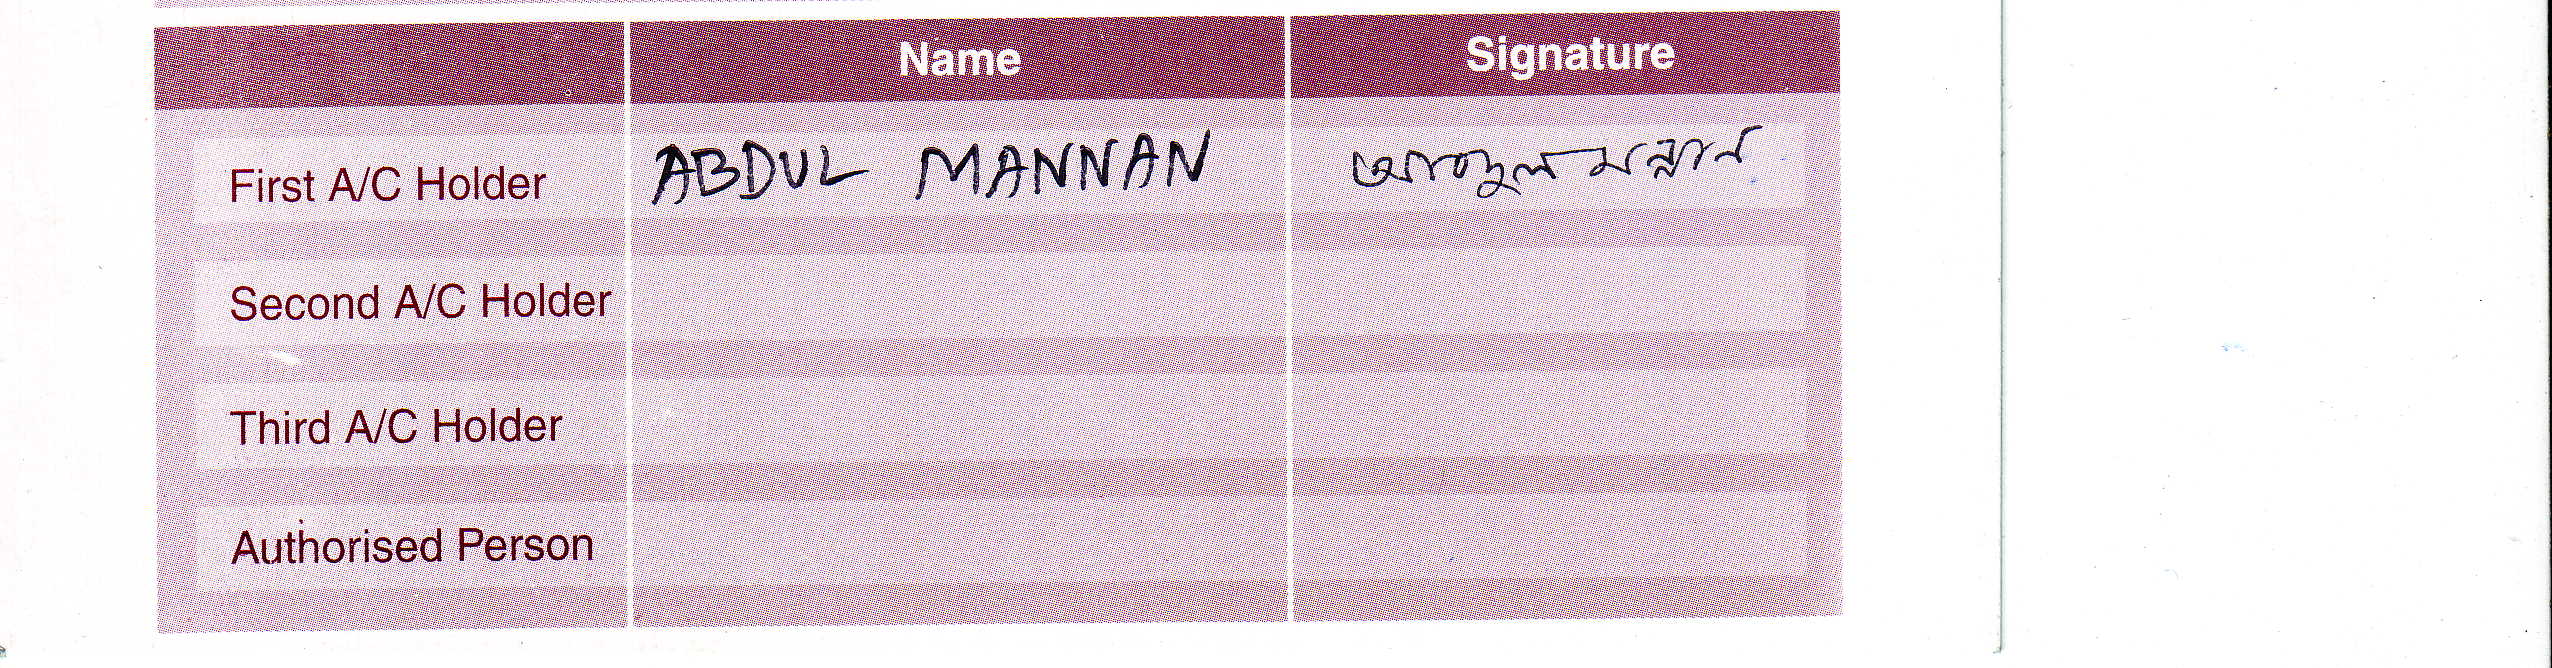 Name Signature
First A/C Holder ABDUL MANNAN আব্দুল মন্নান
Second A/C Holder
Third A/C Holder
Authorised Person